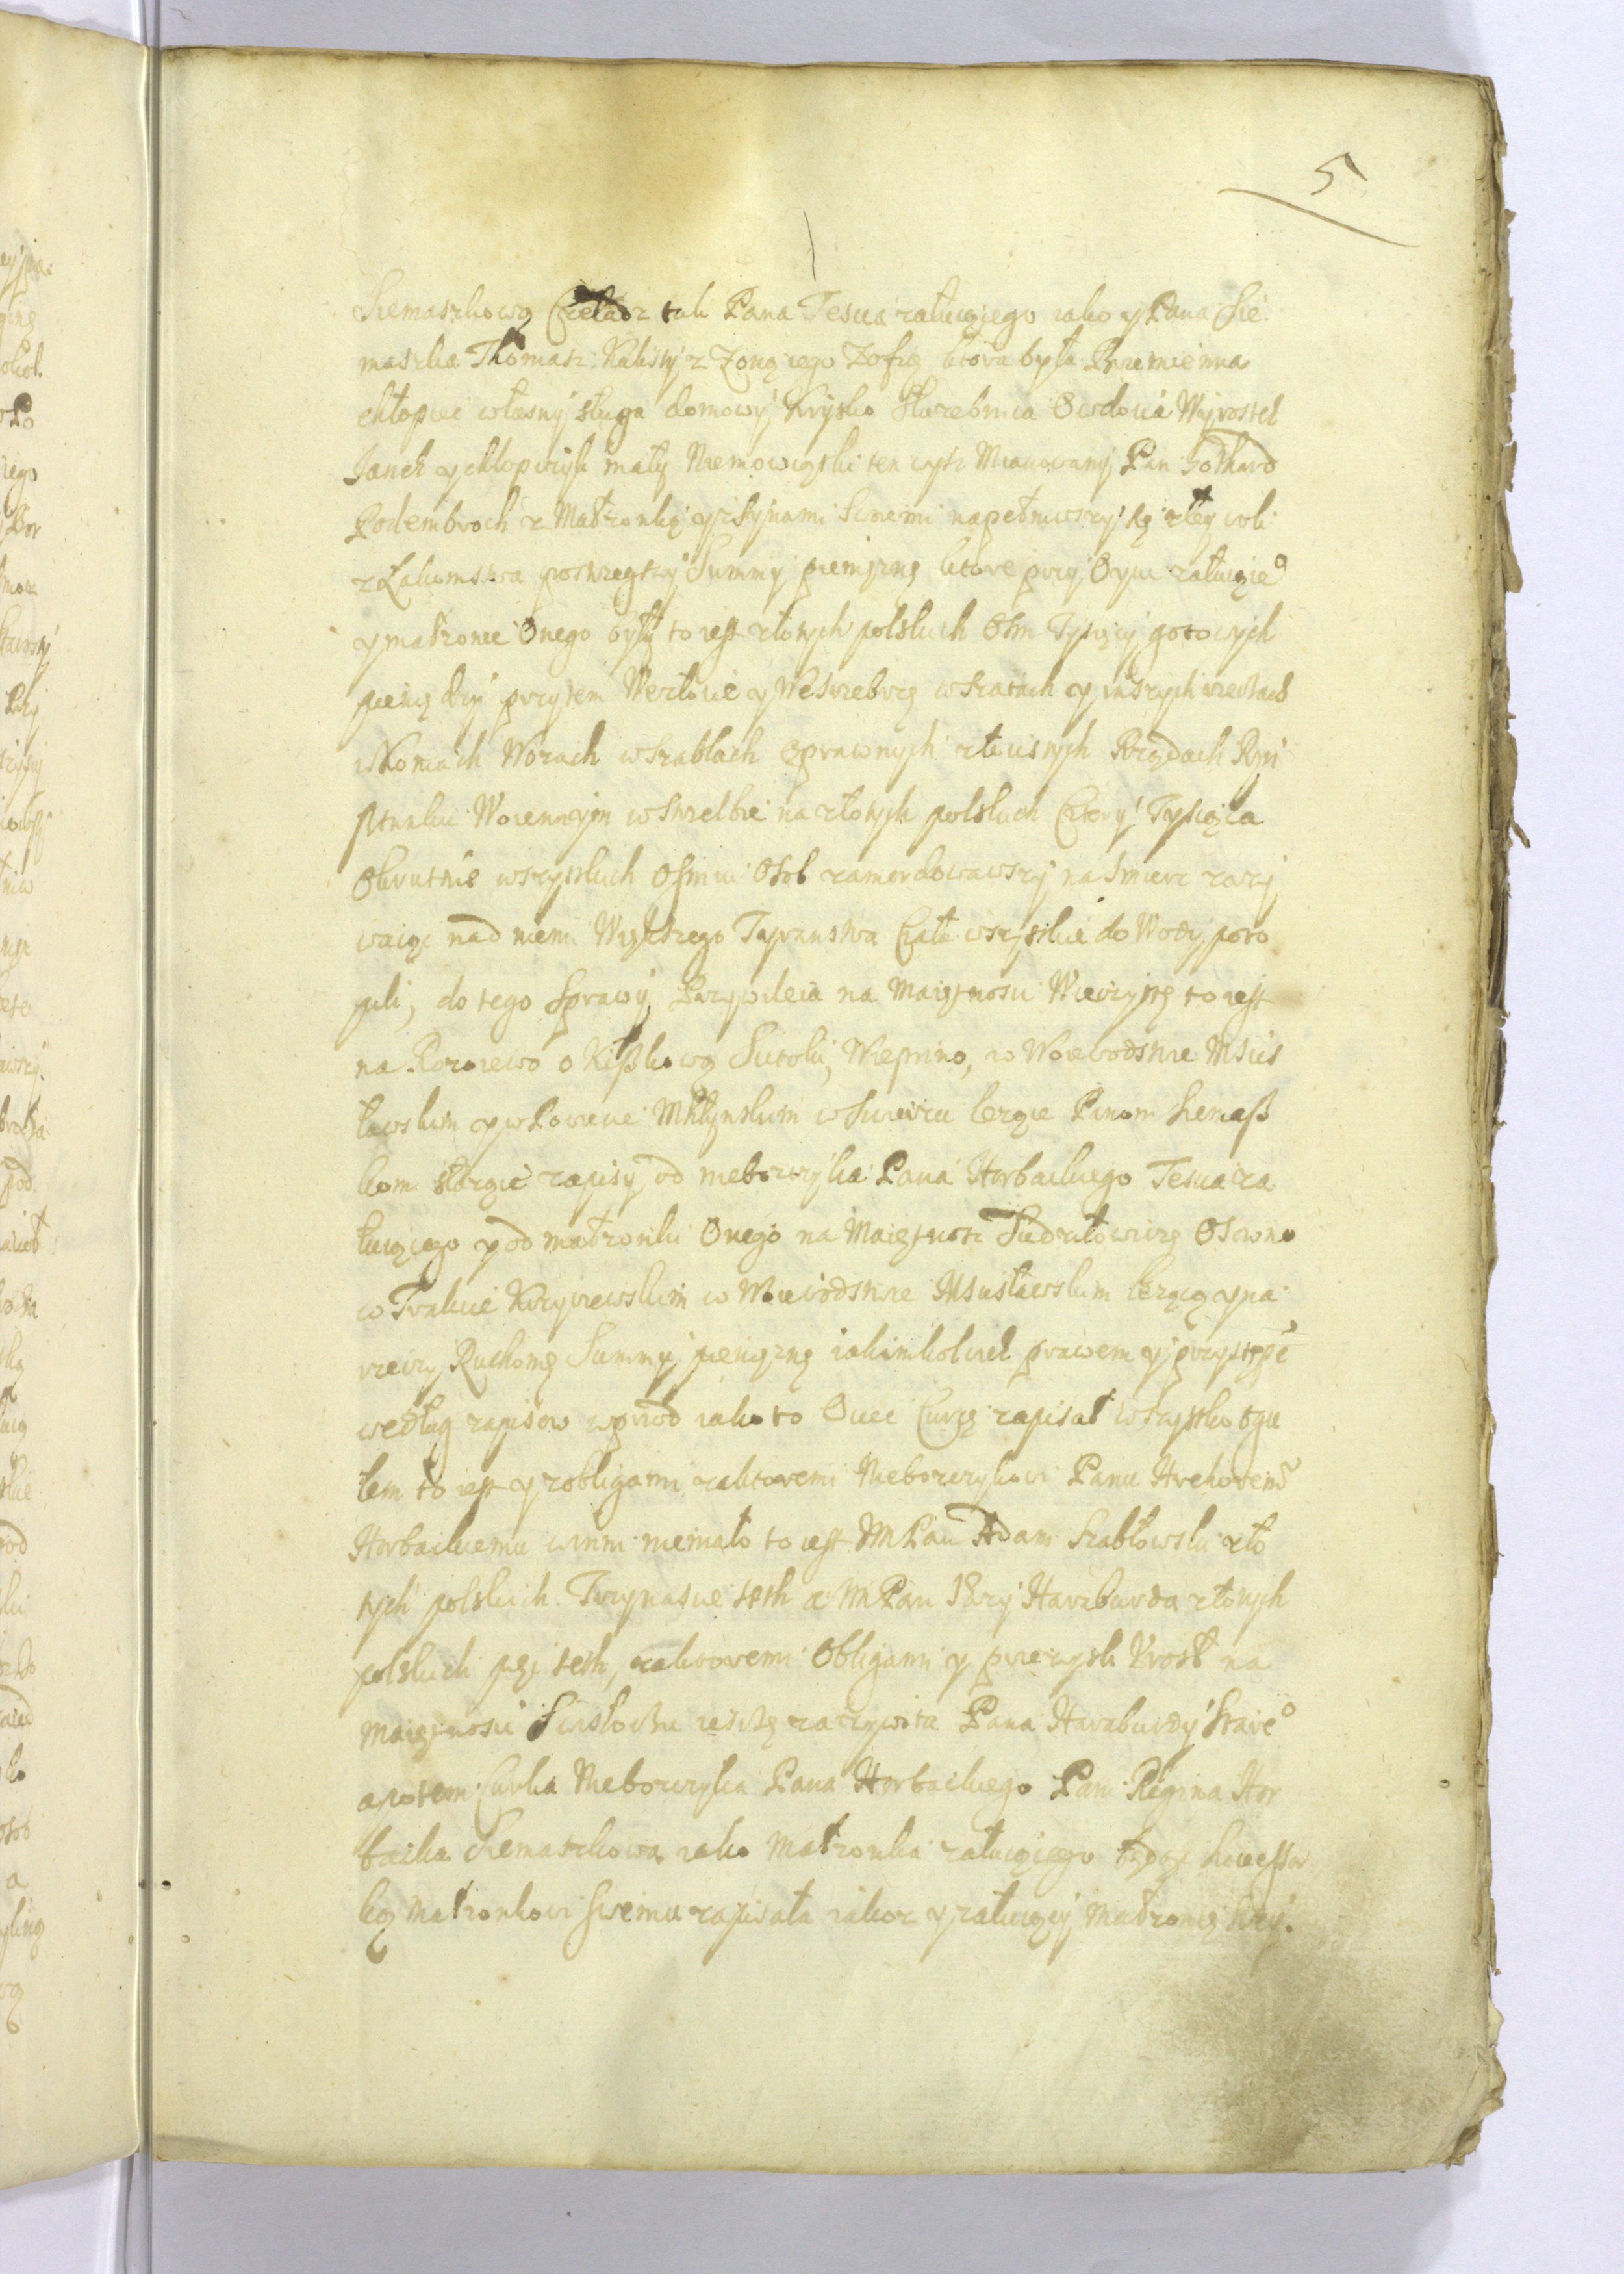 5
Siemaszkową Czeladz tak Pana Tescia załuiącego iako y Pana Sie
maszka Thomasz Kaliski z Zoną iego Zofią ktora była Brzemienna
chłopiec własny sługa domowy Krysko Służebnica Owdocia Wyrostek
Janek y chłopczyk mały Niemowiątko ten wysz Mianowany Pan Gothard
Podembroch z Małżonką y z Synami Swemi napełniwszy się złey woli
z Łakomstwa postrzegszy Summy pieniężne ktore przy Oycu załuiąceo
y małżonce Onego były to iest złotych polskich Osm Tysięcy gotowych
pieniędzy przytem Wezłocie y We Srebrze w Szatach y inszych rzeczach
w Koniach Wozach w Szablach oprawnych złocistych Rzędach Ryn
sztunku Woiennym w Strzelbie na złotych polskich Cztery Tysiąca
Okrutnie wszystkich Osmiu Osob zamordowawszy na smierc zazy
waiąc nad niemi Większego Tyranstwa Ciała wszystkie do Wody poto
pili, do tego Sprawy Przywileia na Maiętnosci Wieczyste to iest
na Rozniewo Kiszkową Sutoki, Wieprino, w Woiewodstwie Mscis
ławskim y w Powiecie Mhlynskim w Siewierzu lezące Panom Siemasz
kom służące zapisy od nieboszczyka Pana Horbackiego Tescia za
łuiącego y od małżonki Onego na Maiętnosc Siedzułowicze Osowno
w Trakcie Krzyczewskim w Woiewodstwie Mscisławskim lezącą y na
rzeczy Ruchome Summy pieniężne iakimkolwiek prawem y przystępe
według zapisow wprzod iako to Oycec Curce zapisał wszystko ogu
łem to iest y z obligami za ktoremi Nieboszczykowi Panu Hrehoremu
Horbackiemu winni niemało to iest JM Pan Adam Szabłowski zło
tych polskich Trzynascie seth a JM Pan Jerzy Haraburda złotych
polskich pięc seth, za ktoremi Obligami y przezysk Urosł na
Maiętnosci Swisłoczu ieszcze za zywota Pana Haraburdy Stareo
a potem Curka Nieboszczyka Pana Horbackiego Pani Regina Hor
backa Siemaszkowa iako Małżonka załuiącego
Małżonkowi Swemu zapisała iakoz y załuiący Małżonce swey.